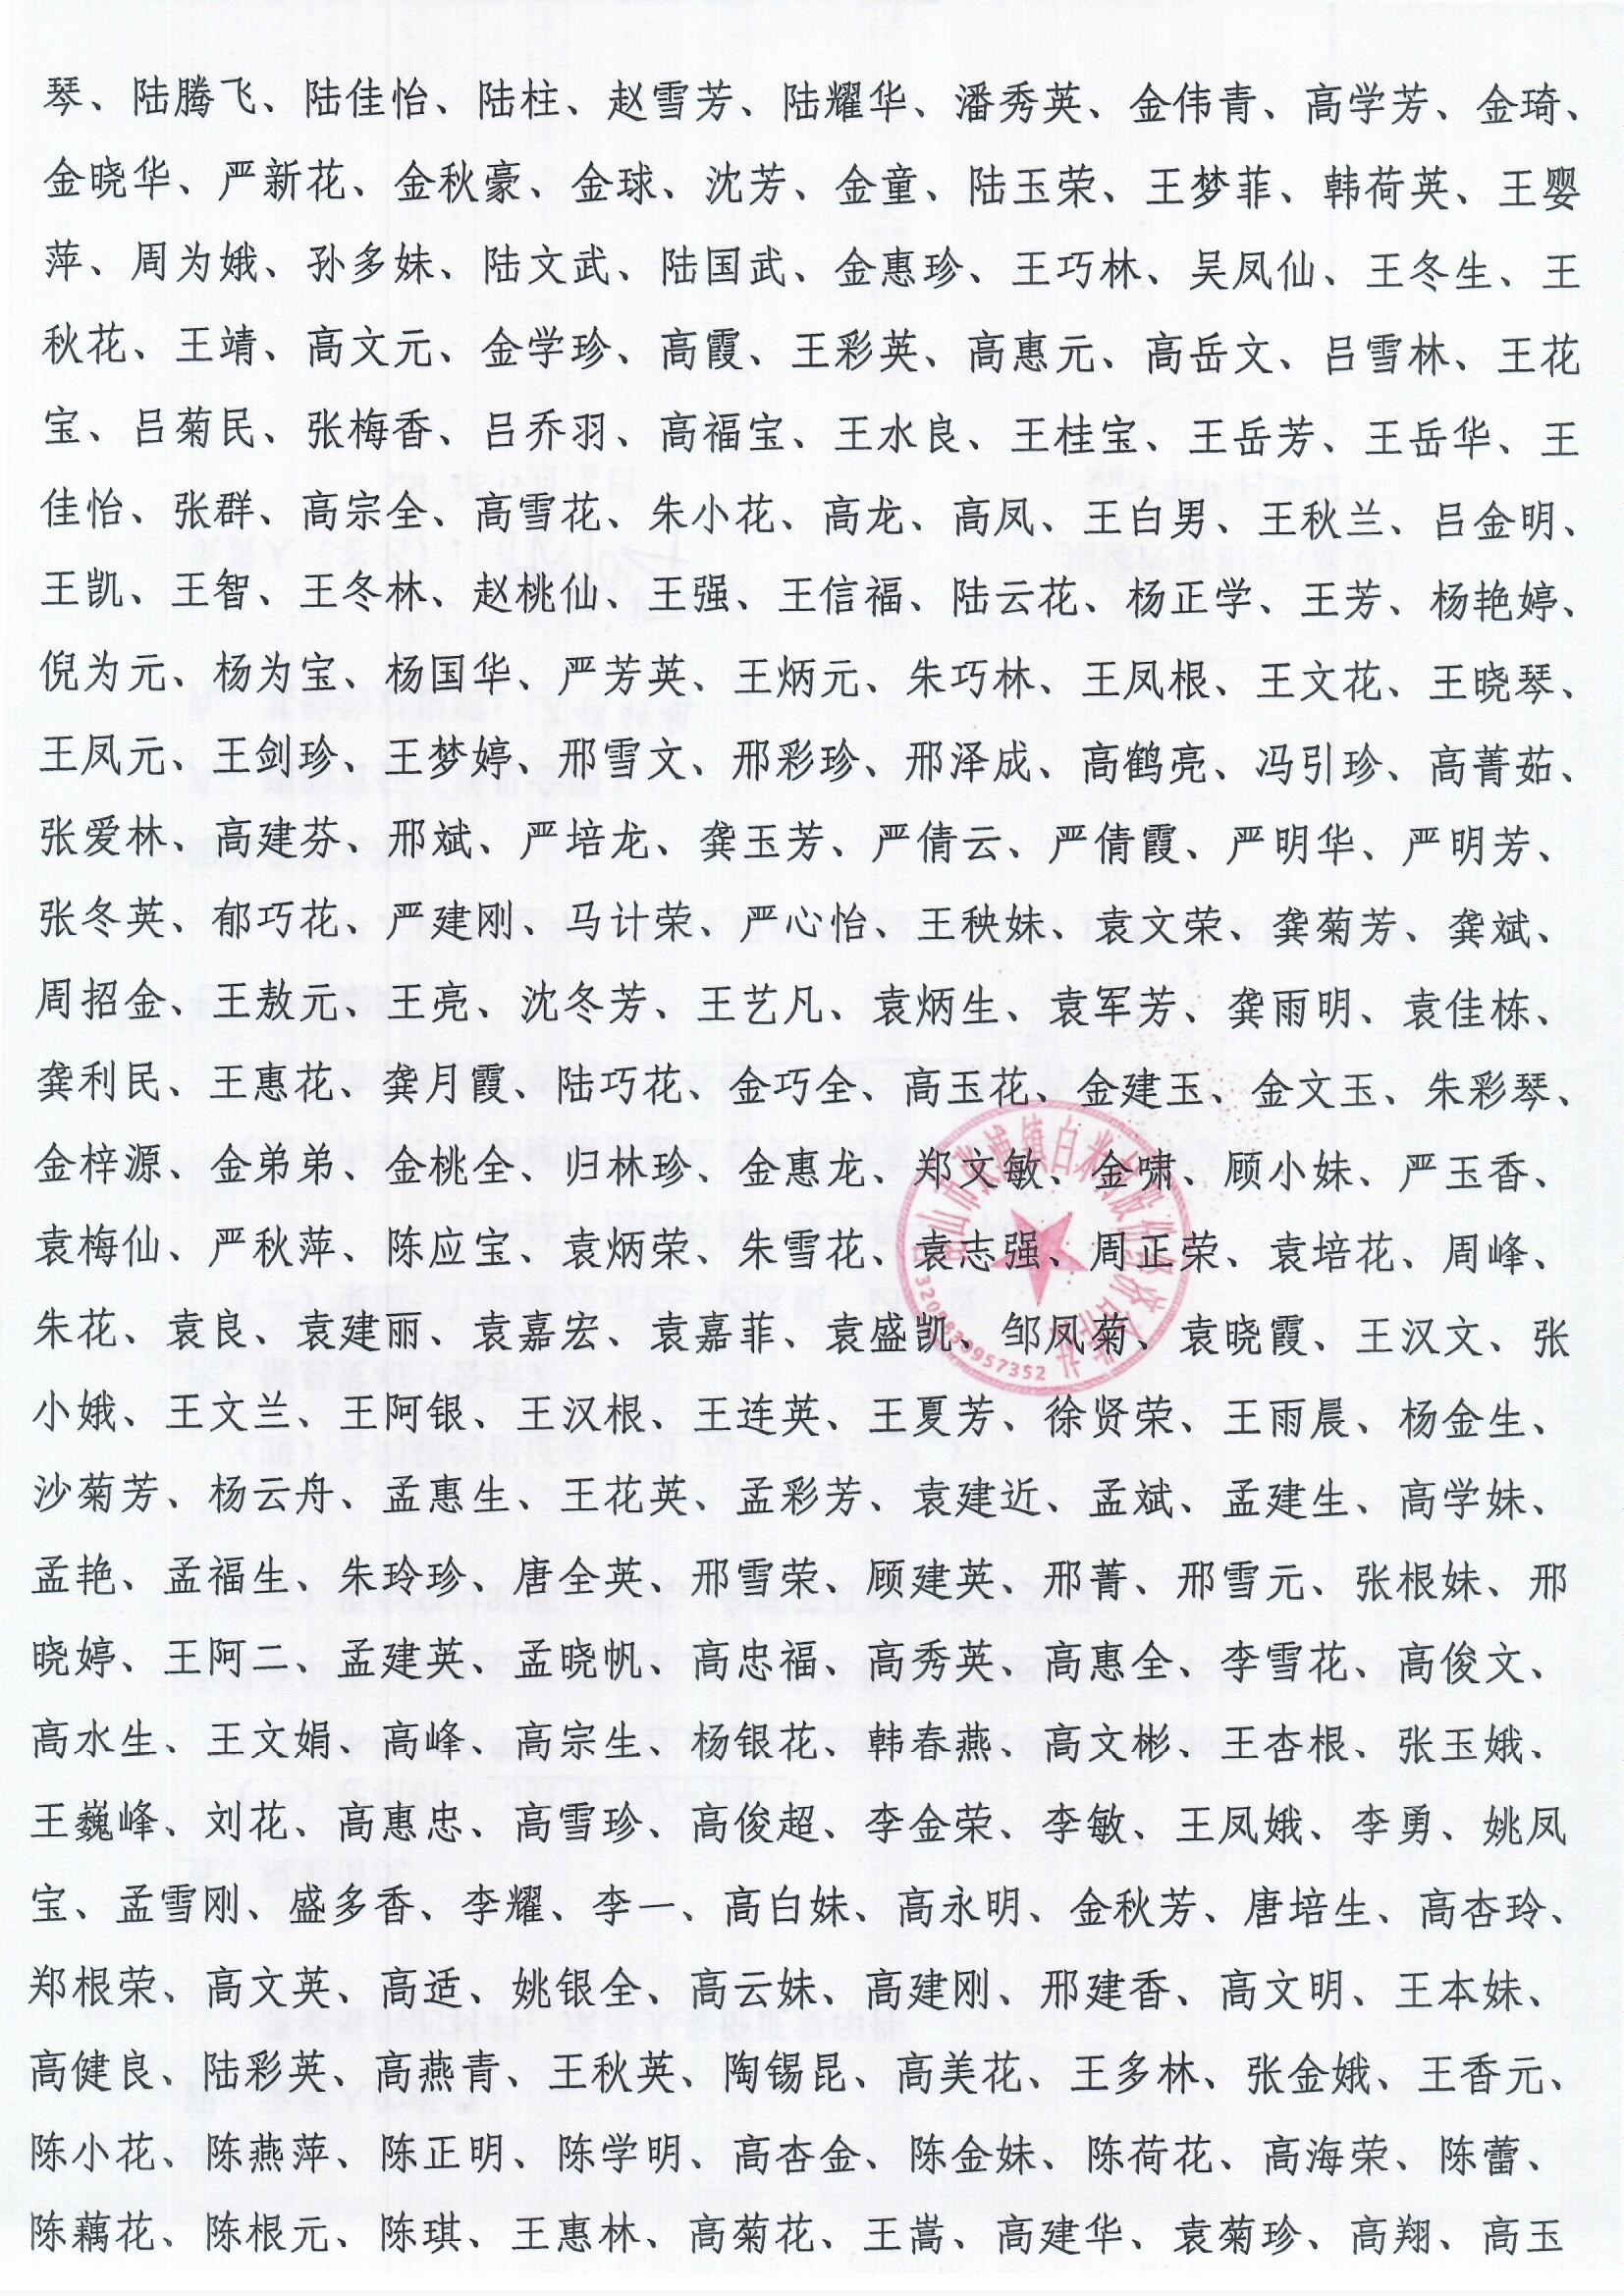 琴、陆腾飞、陆佳怡、陆柱、赵雪芳、陆耀华、潘秀英、金伟青、高学芳、金琦、
金晓华、严新花、金秋豪、金球、沈芳、金童、陆玉荣、王梦菲、韩荷英、王婴
萍、周为娥、孙多妹、陆文武、陆国武、金惠珍、王巧林、吴凤仙、王冬生、王
秋花、王靖、高文元、金学珍、高霞、王彩英、高惠元、高岳文、吕雪林、王花
宝、吕菊民、张梅香、吕乔羽、高福宝、王水良、王桂宝、王岳芳、王岳华、王
佳怡、张群、高宗全、高雪花、朱小花、高龙、高凤、王白男、王秋兰、吕金明、
王凯、王智、王冬林、赵桃仙、王强、王信福、陆云花、杨正学、王芳、杨艳婷、
倪为元、杨为宝、杨国华、严芳英、王炳元、朱巧林、王凤根、王文花、王晓琴、
王凤元、王剑珍、王梦婷、邢雪文、邢彩珍、邢泽成、高鹤亮、冯引珍、高菁茹、
张爱林、高建芬、邢斌、严培龙、龚玉芳、严倩云、严倩霞、严明华、严明芳、
张冬英、郁巧花、严建刚、马计荣、严心怡、王秧妹、袁文荣、龚菊芳、龚斌、
周招金、王敖元、王亮、沈冬芳、王艺凡、袁炳生、袁军芳、龚雨明、袁佳栋、
龚利民、王惠花、龚月霞、陆巧花、金巧全、高玉花、金建玉、金文玉、朱彩琴、
金梓源、金弟弟、金桃全、归林珍、金惠龙、郑文敏、金啸、顾小妹、严玉香、
袁梅仙、严秋萍、陈应宝、袁炳荣、朱雪花、袁志强、周正荣、袁培花、周峰、
朱花、袁良、袁建丽、袁嘉宏、袁嘉菲、袁盛凯、邹凤菊、袁晓霞、王汉文、张
小娥、王文兰、王阿银、王汉根、王连英、王夏芳、徐贤荣、王雨晨、杨金生、
沙菊芳、杨云舟、孟惠生、王花英、孟彩芳、袁建近、孟斌、孟建生、高学妹、
孟艳、孟福生、朱玲珍、唐全英、邢雪荣、顾建英、邢菁、邢雪元、张根妹、邢
晓婷、王阿二、孟建英、孟晓帆、高忠福、高秀英、高惠全、李雪花、高俊文、
高水生、王文娟、高峰、高宗生、杨银花、韩春燕、高文彬、王杏根、张玉娥、
王巍峰、刘花、高惠忠、高雪珍、高俊超、李金荣、李敏、王凤娥、李勇、姚凤
宝、孟雪刚、盛多香、李耀、李一、高白妹、高永明、金秋芳、唐培生、高杏玲、
郑根荣、高文英、高适、姚银全、高云妹、高建刚、邢建香、高文明、王本妹、
高健良、陆彩英、高燕青、王秋英、陶锡昆、高美花、王多林、张金娥、王香元、
陈小花、陈燕萍、陈正明、陈学明、高杏金、陈金妹、陈荷花、高海荣、陈蕾、
陈藕花、陈根元、陈琪、王惠林、高菊花、王嵩、高建华、袁菊珍、高翔、高玉